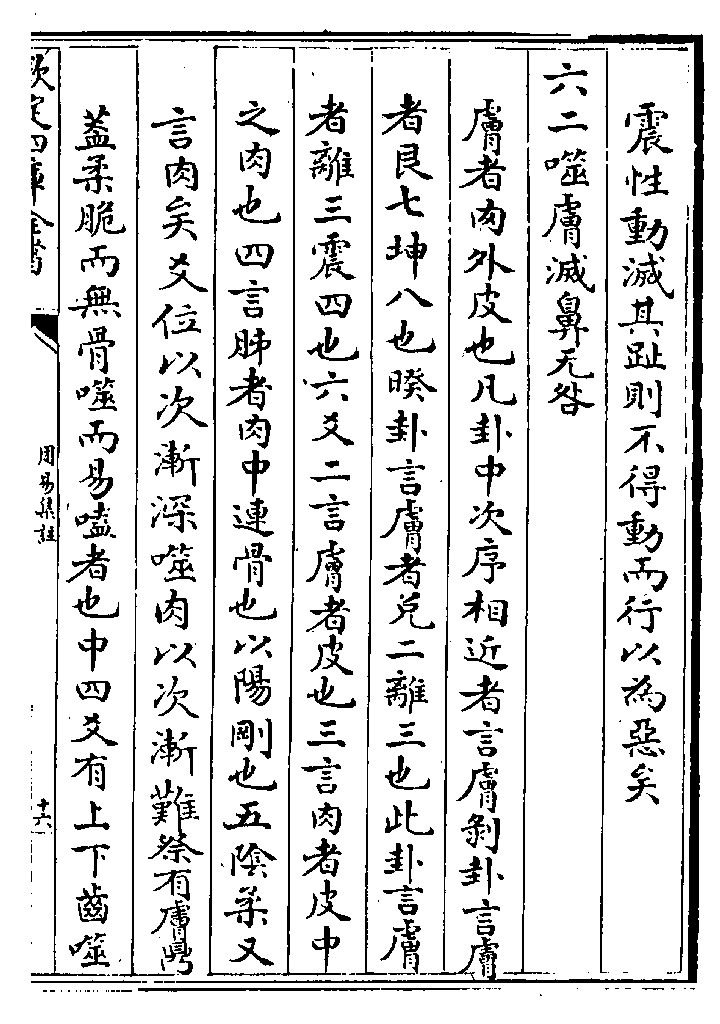 震性動滅其趾則不得動而行以為惡矣
六二噬膚滅鼻无咎
膚者肉外皮也凡卦中次序相近者言膚剝卦言膚
者艮七坤八也睽卦言膚者兌二離三也此卦言膚
者離三震四也六爻二言膚者皮也三言肉者皮中
之肉也四言胏者肉中連骨也以陽剛也五陰柔又
言肉矣爻位以次漸深噬肉以次漸難祭有膚鼎
葢柔脆而無骨噬而易嗑者也中四爻有上下齒噬
欽定四庫全書
周易集註
十六